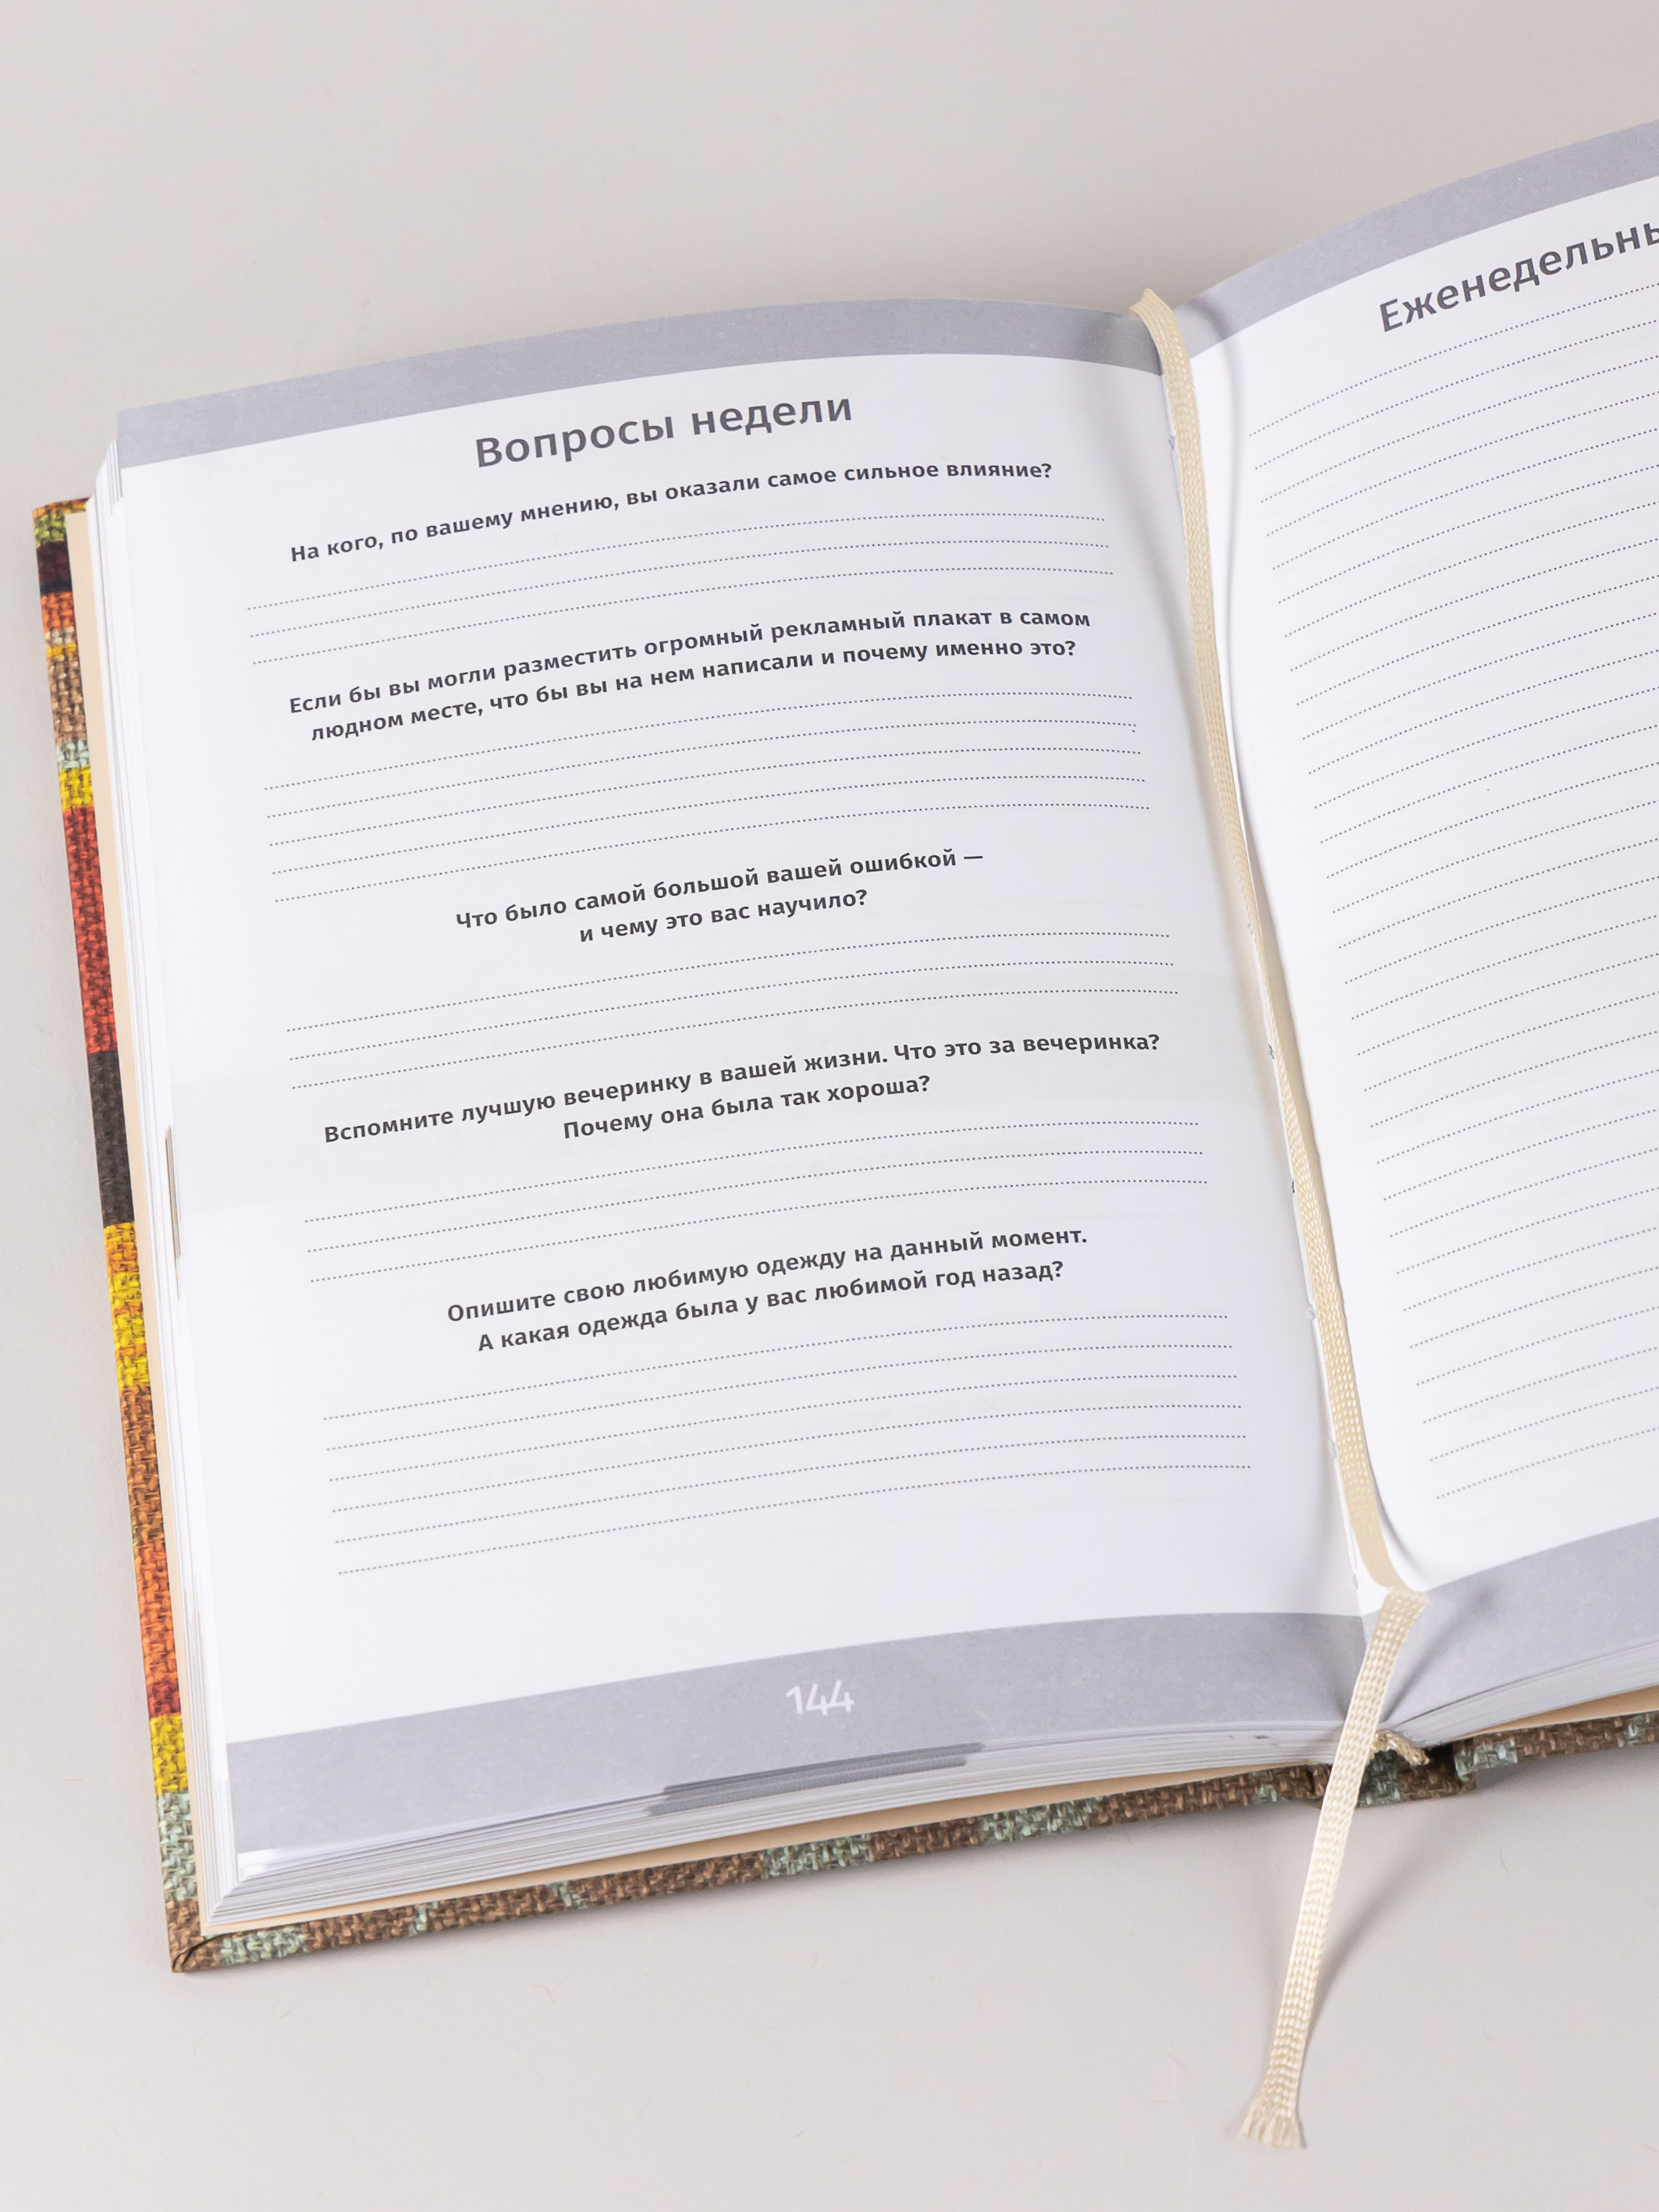 Вопросы недели
На кого, по вашему мнению, вы оказали самое сильное влияние?
Если бы вы могли разместить огромный рекламный плакат в самом
людном месте, что бы вы на нем написали и почему именно это?
Что было самой большой вашей ошибкой —
и чему это вас научило?
Вспомните лучшую вечеринку в вашей жизни. Что это за вечеринка?
Почему она была так хороша?
Опишите свою любимую одежду на данный момент.
А какая одежда была у вас любимой год назад?
144